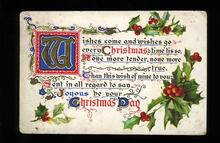 Wishes come and wishes go
every Christmas time his so,
None more tender, none more
true,
Than this wish of mine to you;
Sent in all regard to say
Joyous be your
Christmas Day